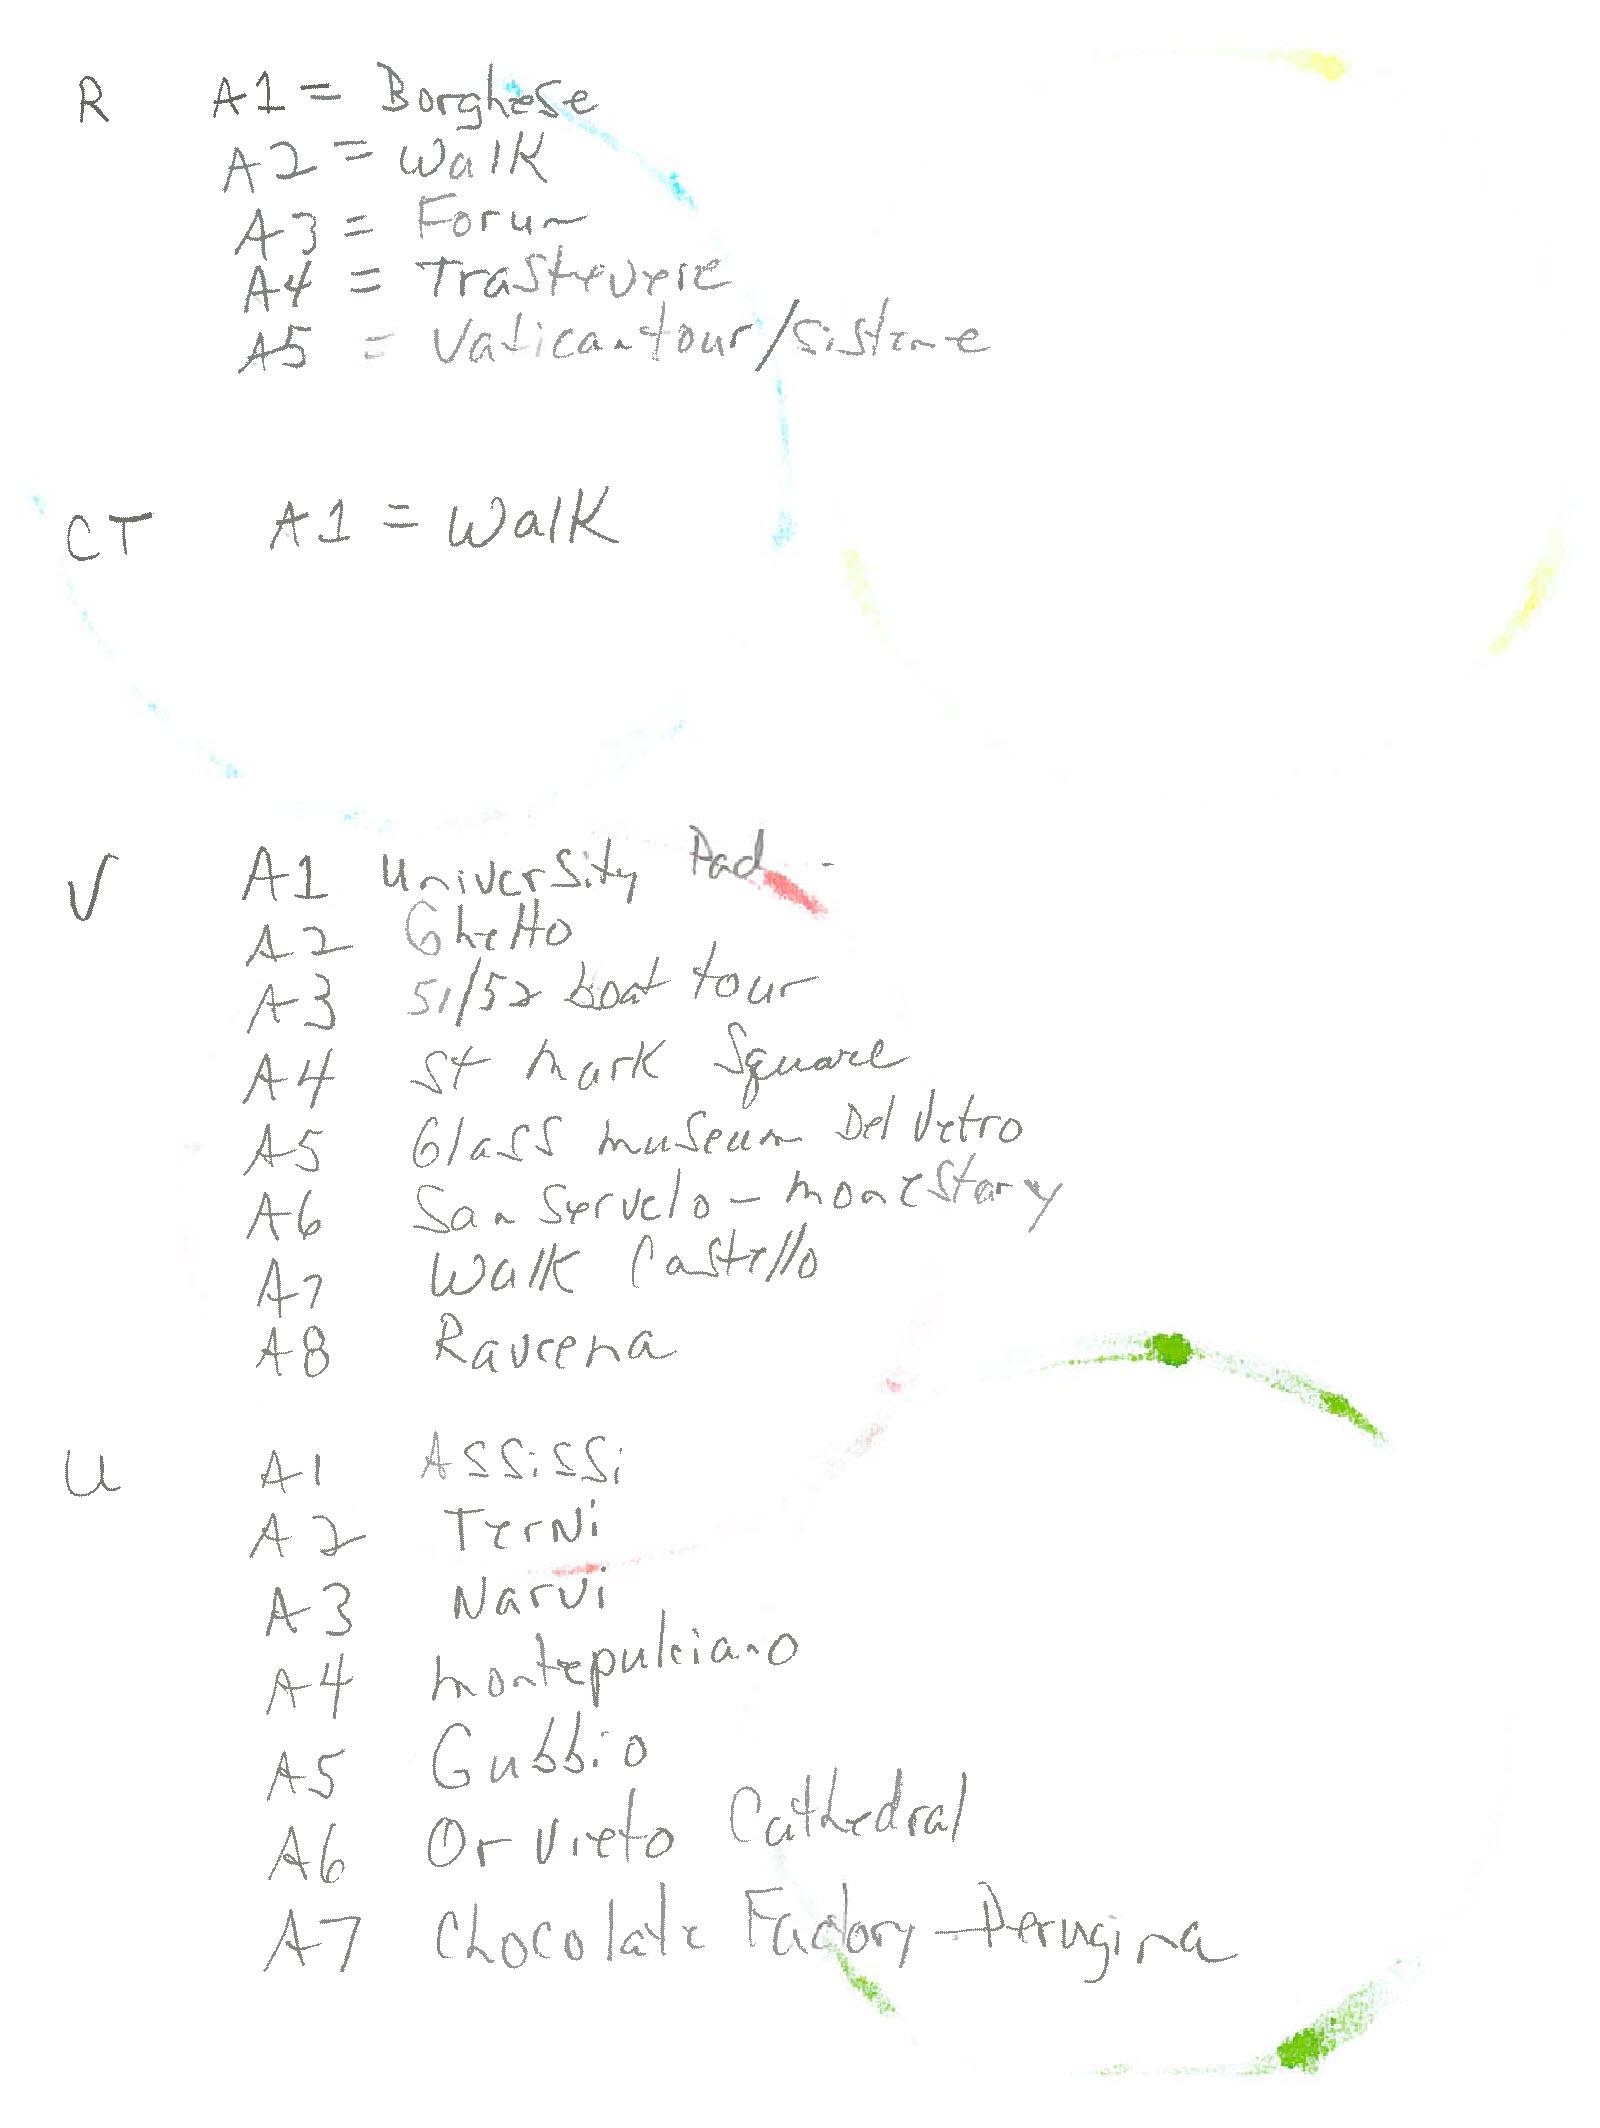 R A1 = Borghese
A2 = Walk
A3 = Forum
A4 = Trastevere
A5 = Vatican tour/Sistine
CT A1 = Walk
V A1 University Pad
A2 Ghetto
A3 51/52 boat tour
A4 St Mark Square
A5 Glass museum Del Vetro
A6 San Servelo - monestary
A7 Walk Castello
A8 Raveena
U A1 Assissi
A2 Terni
A3 Narvi
A4 Montepulciano
A5 Gubbio
A6 Orvieto Cathedral
A7 Chocolate Factory - Perugina